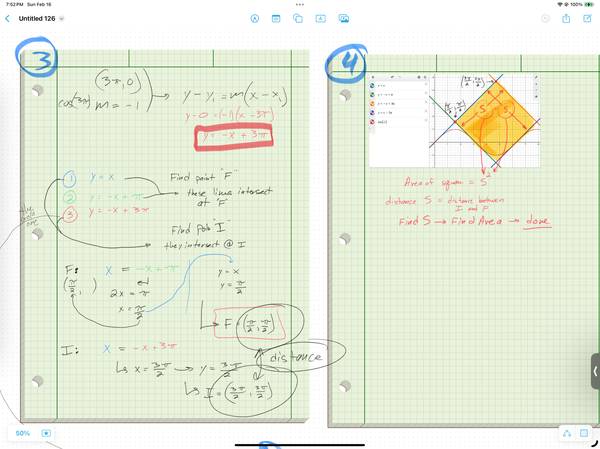 7:52 PM Sun Feb 16
100%
Untitled 126
3
(3π, 0)
cos(3π) m = -1
y - y₁ = m(x - x₁)
y - 0 = (-1)(x - 3π)
y = -x + 3π
1 y = x
2 y = -x + π
3 y = -x + 3π
Find point "F"
these lines intersect
at "F"
Find "I"
they intersect @ I
F: x = -x + π
(π/2, )
2x = π
x = π/2
y = x
y = π/2
F = (π/2, π/2)
distance
I: x = -x + 3π
x = 3π/2 → y = 3π/2
I = (3π/2, 3π/2)
4
(3π/2, 3π/2)
(π/2, π/2)
S S
Area of square = S²
distance S = distance between
I and F
Find S → Find Area → done
50%